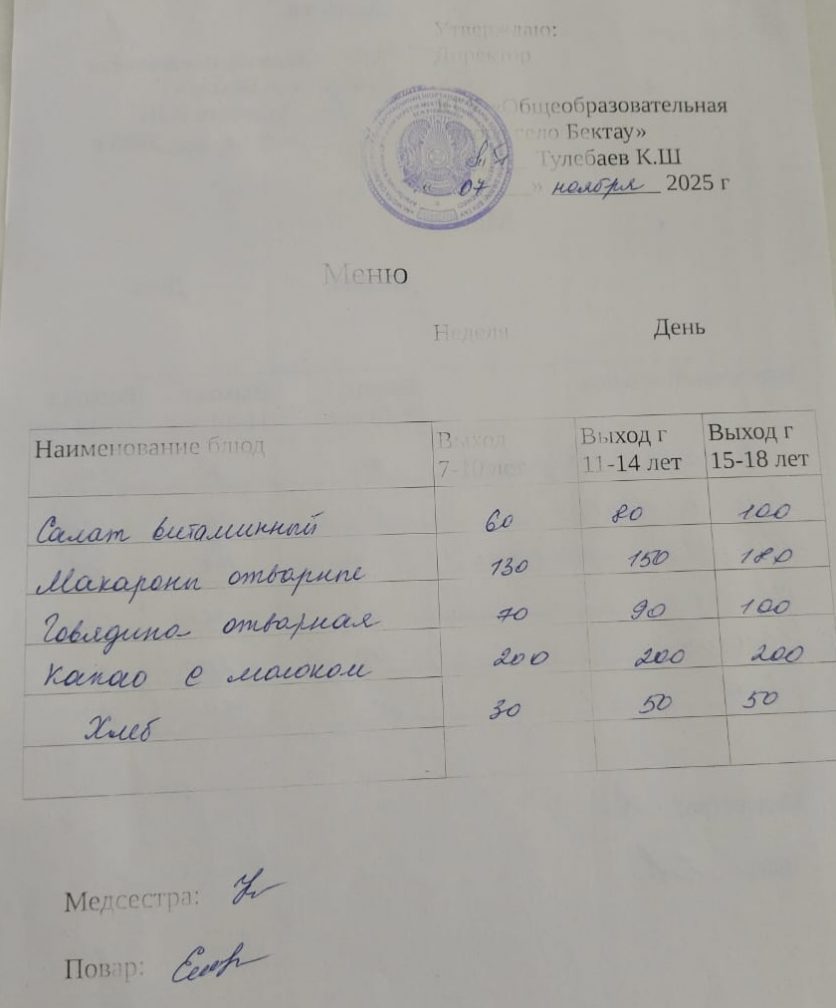 Утверждаю:
Директор
«Общеобразовательная
село Бектау»
Тулебаев К.Ш
« 07 » ноября 2025 г
Меню
Неделя День
Наименование блюд Выход 7-10 лет Выход г 11-14 лет Выход г 15-18 лет
Салат витаминный 60 80 100
Макароны отварные 130 150 180
Говядина отварная 70 90 100
Какао с молоком 200 200 200
Хлеб 30 50 50
Медсестра:
Повар: